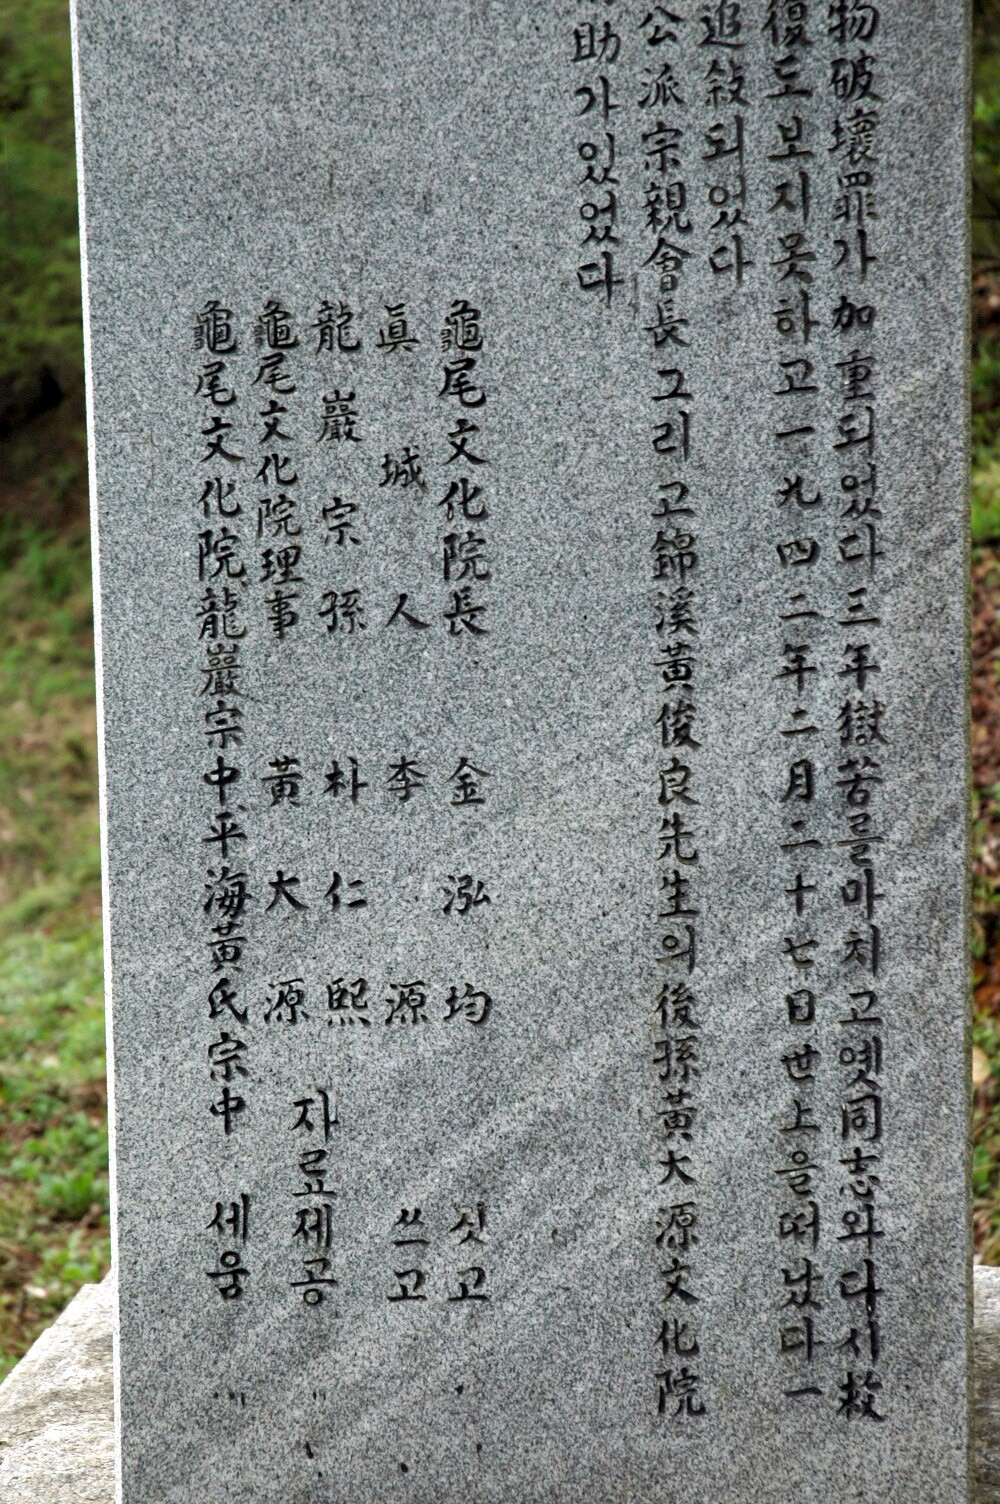 物破壞罪가加重되었다三年獄苦를마치고옛同志와다시救
復도보지못하고一九四二年二月二十七日世上을떠났다一
追敍되었다
公派宗親會長그리고錦溪黃俊良先生의後孫黃大源文化院
助가있었다
龜尾文化院長 金泓均 짓고
眞城人 李源 쓰고
龍巖宗孫 朴仁熙
龜尾文化院理事 黃大源 자료제공
龜尾文化院龍巖宗中平海黃氏宗中 세움